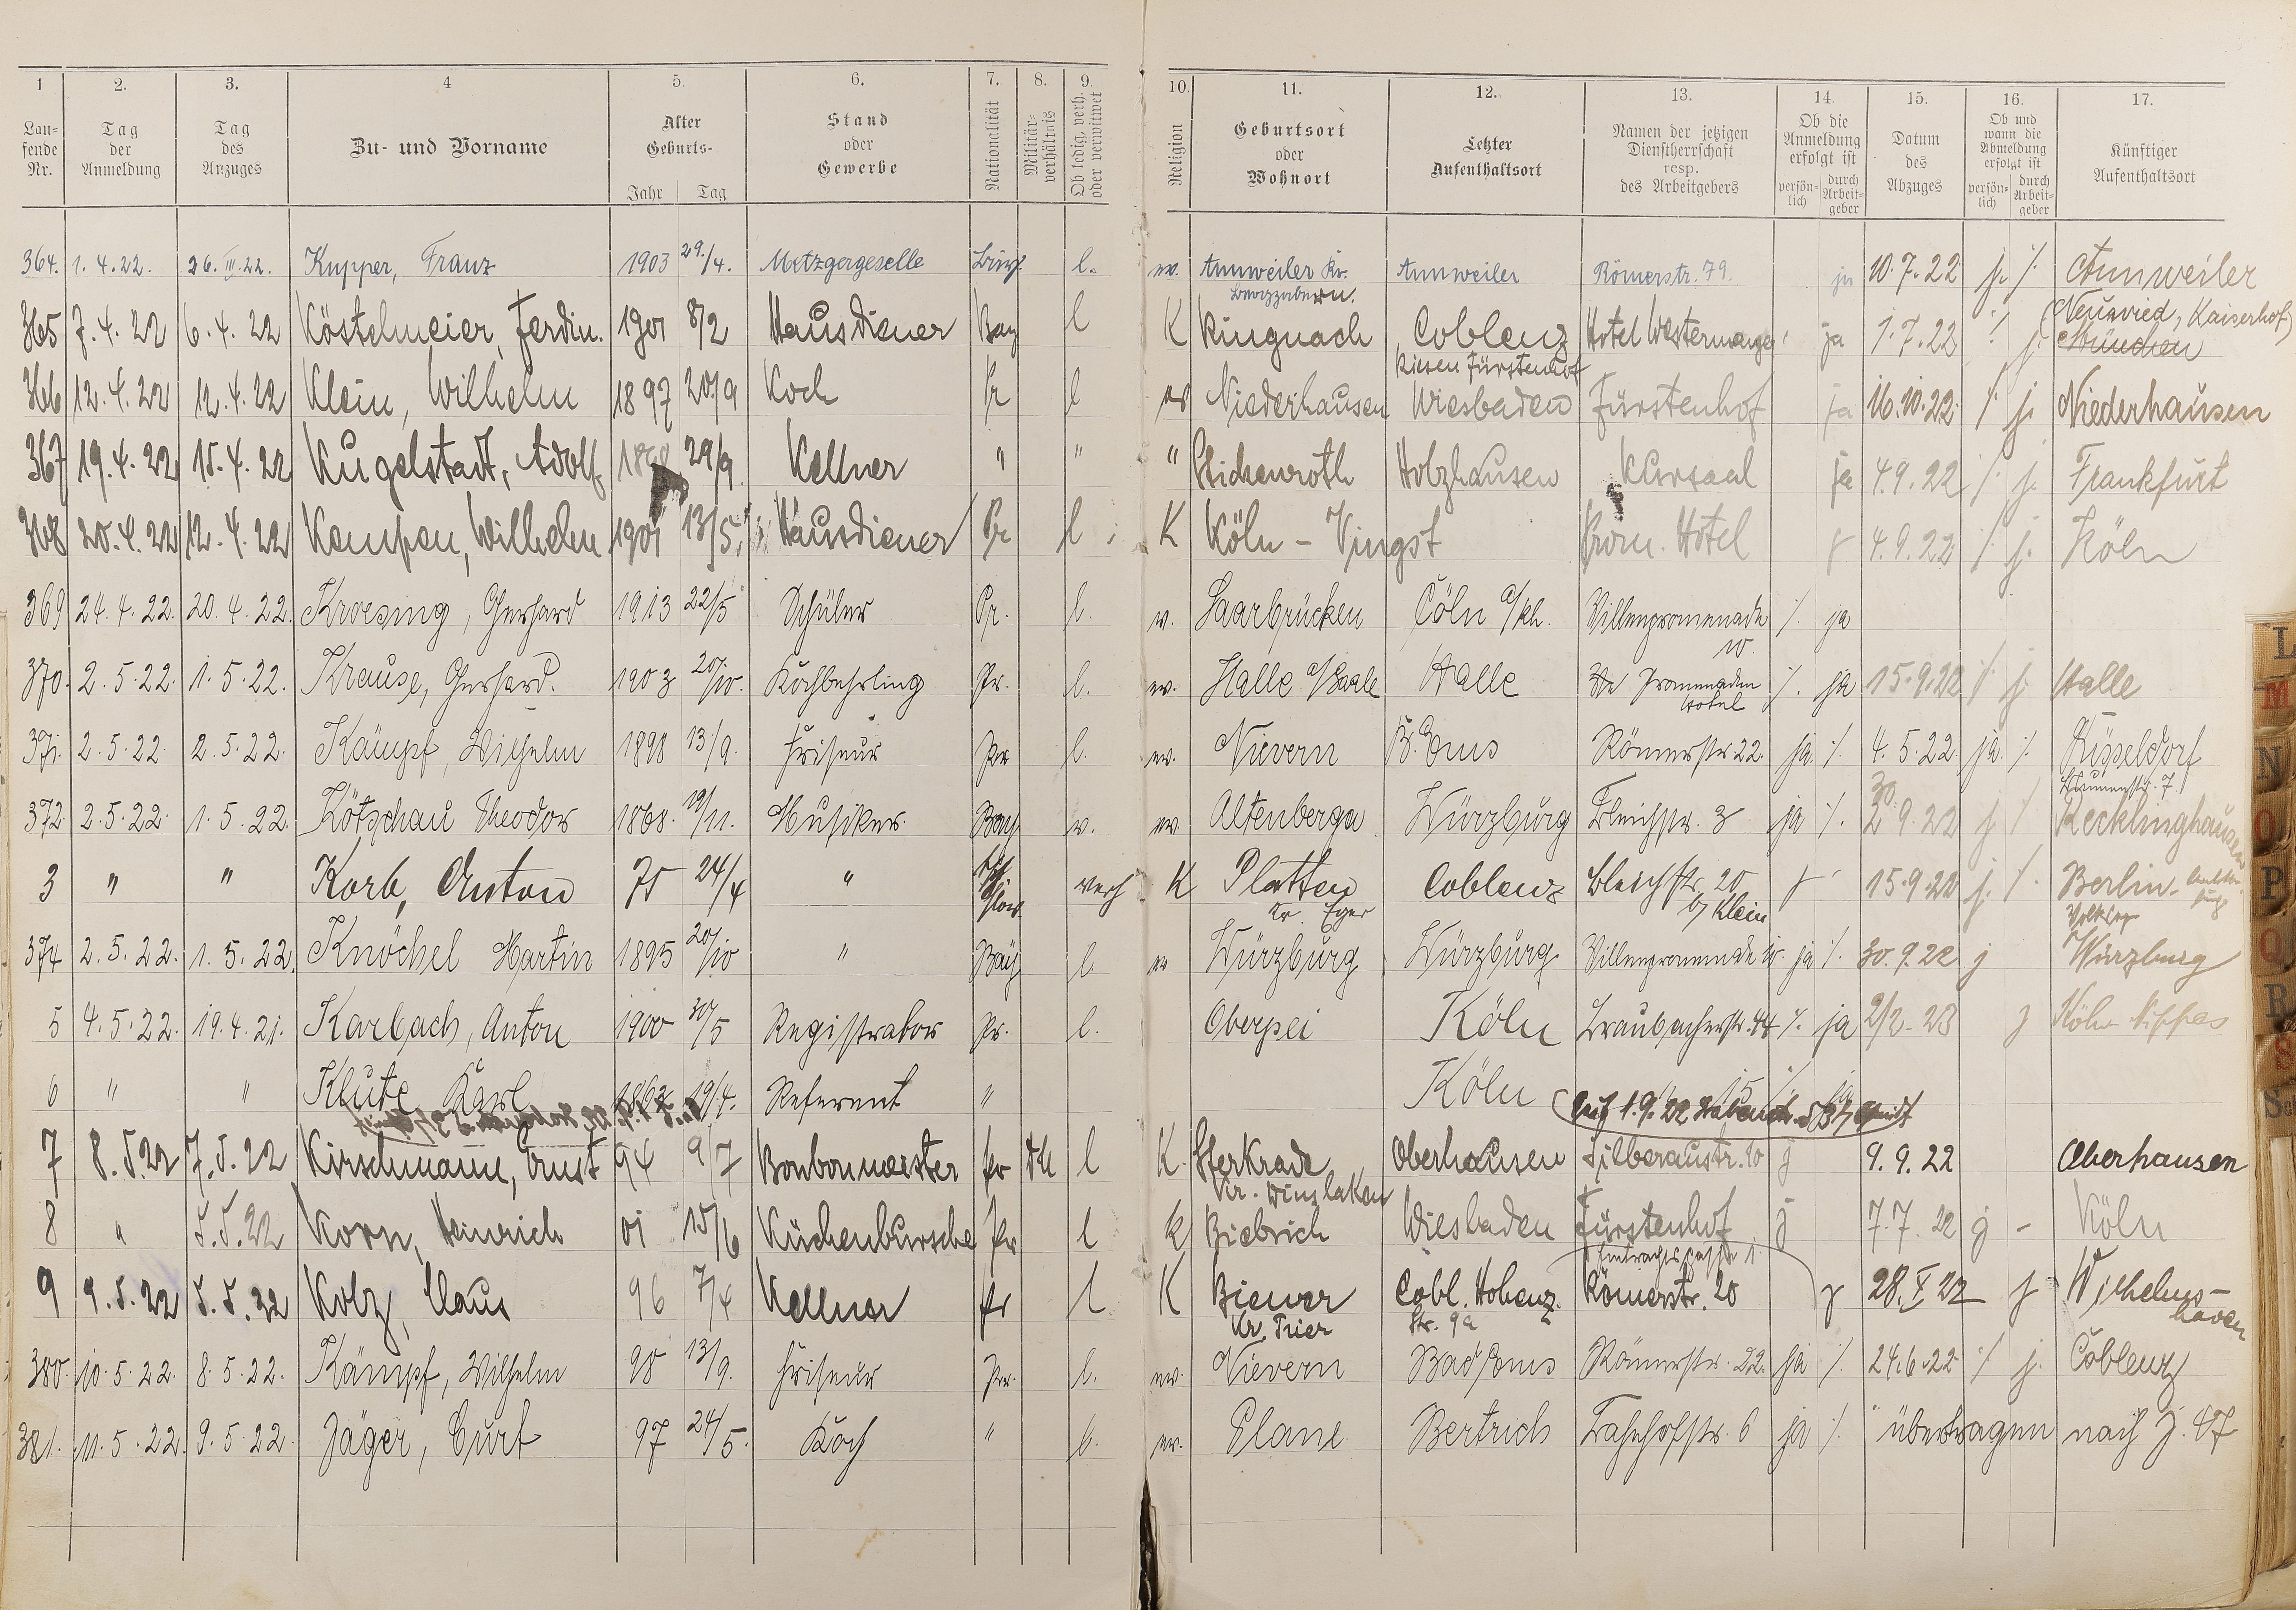 1 2. 3. 4 5. 6. 7. 8. 9. 10. 11. 12. 13. 14. 15. 16. 17.
Lau-
fende
Nr.
Tag
der
Anmeldung
Tag
des
Anzuges
Zu- und Vorname
Alter
Geburts-
Jahr Tag
Stand
oder
Gewerbe
Nationalität
Militär-
verhältnis
Ob ledig, verh.
oder verwitwet
Religion
Geburtsort
oder
Wohnort
Letzter
Aufenthaltsort
Namen der jetzigen
Dienstherrschaft
resp.
des Arbeitgebers
Ob die
Anmeldung
erfolgt ist
persön-
lich
durch
Arbeit-
geber
Datum
des
Abzuges
Ob und
wann die
Abmeldung
erfolgt ist
persön-
lich
durch
Arbeit-
geber
Künftiger
Aufenthaltsort
364. 1. 4. 22. 26. III. 22. Kupper, Franz 1903 29./4. Metzgergeselle l. ev. Annweiler Kr. Annweiler Römerstr. 79. ja 10. 7. 22 j. /. Annweiler
365 7. 4. 22 6. 4. 22 Köstelmeier, Ferdin. 1901 8/2 Hausdiener Bay l K Ringnach Coblenz Hotel ja 1. 7. 22 /. j. Neuwied, Kaiserhof,
München
Riesen Fürstenhof
366 12. 4. 22 12. 4. 22 Klein, Wilhelm 1897 20/9 Koch Pr l ev Niederhausen Wiesbaden Fürstenhof ja 16. 10. 22. /. j. Niederhausen
367 19. 4. 22 15. 4. 22 Kugelstadt, Adolf 29/9 Kellner " " " Holzhausen Kursaal ja 4. 9. 22 /. j. Frankfurt
368 20. 4. 22 12. 4. 22 Kempen, Wilhelm 1901 13/5. Hausdiener Pr l K Köln - Vingst Prom. Hotel j 4. 9. 22 /. j. Köln
369 24. 4. 22. 20. 4. 22. Kroesing, Gerhard 1913 22/5 Schüler Pr. l. ev. Saarbrücken Cöln a/Rh. Villenpromenade
10. /. ja
370. 2. 5. 22. 1. 5. 22. Krause, Gerhard. 1903 20/10. Kochlehrling Pr. l. ev. Halle a/Saale Halle Promenaden
Hotel /. ja 15. 9. 22 /. j. Halle
371. 2. 5. 22. 2. 5. 22. Kämpf, Wilhelm 1898 13/9. Friseur Pr l. ev. Nievern B. Ems Römerstr 22. ja. /. 4. 5. 22. ja. /. Düsseldorf
Blumenstr. 7
372. 2. 5. 22. 1. 5. 22. Kötzschau Theodor 1868. 19/11. Musiker. Bay v. ev. Altenberga Würzburg Bleichstr. 3 ja /. 30. 9. 22 j. /. Recklinghausen
3 " " Korb, Anton 75 24/4 " verh K Platten
Kr. Eger Coblenz Bleichstr. 20
b/ Klein j 15. 9. 22 j. /. Berlin
374 2. 5. 22. 1. 5. 22. Knöchel Martin 1895 20/10 " Bay l. ev Würzburg Würzburg. Villenpromenade 10. ja /. 30. 9. 22 j Würzburg
5 4. 5. 22. 19. 4. 21. Karbach, Anton 1900 30/5 Registrator Pr. l. Oberpei Köln Braubacherstr. 44 /. ja 2/2. 23 j Köln-Nippes
6 " " Klute Karl 19/4. Referent " Köln
7 8. 5. 22 7. 5. 22 Kirschmann, Ernst 94 9/7 Bonbonmeister Pr l K. Sterkrade
Kr. Dinslaken Oberhausen Silberaustr. 10 j 9. 9. 22 Oberhausen
8 " 5. 5. 22 Korn, Heinrich 01 15/6 Küchenbursche Pr l K Biebrich Wiesbaden Fürstenhof j 7. 7. 22 j - Köln
9 9. 5. 22 5. 5. 22 Kolz, Claus 96 7/4 Kellner Pr l K Biewer
Kr. Trier Cobl. Hohenz.
Str. 9a Römerstr. 20 j 28. V 22 j Wilhelms-
haven
380. 10. 5. 22. 8. 5. 22. Kämpf, Wilhelm 98 13/9. Friseur Pr. l. ev. Nievern Bad Ems Römerstr. 22. ja /. 24. 6. 22 /. j. Coblenz
381. 11. 5. 22. 9. 5. 22. Jäger, Curt 97 24/5. Koch " l. ev. Plane Bertrich Bahnhofstr. 6 ja /. übertragen nach J. 47
L
M
N
O
P
Q
R
S
Sch